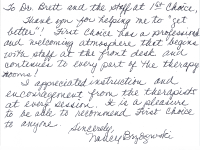 To Dr. Brett and the staff at 1st Choice,
Thank you for helping me to "get
better"! First Choice has a professional
and welcoming atmosphere that begins
with staff at the front desk and
continues to every part of the therapy
rooms!
I appreciated instruction and
encouragement from the therapists
at every session. It is a pleasure
to be able to recommend First Choice
to anyone.
Sincerely,
Nancy